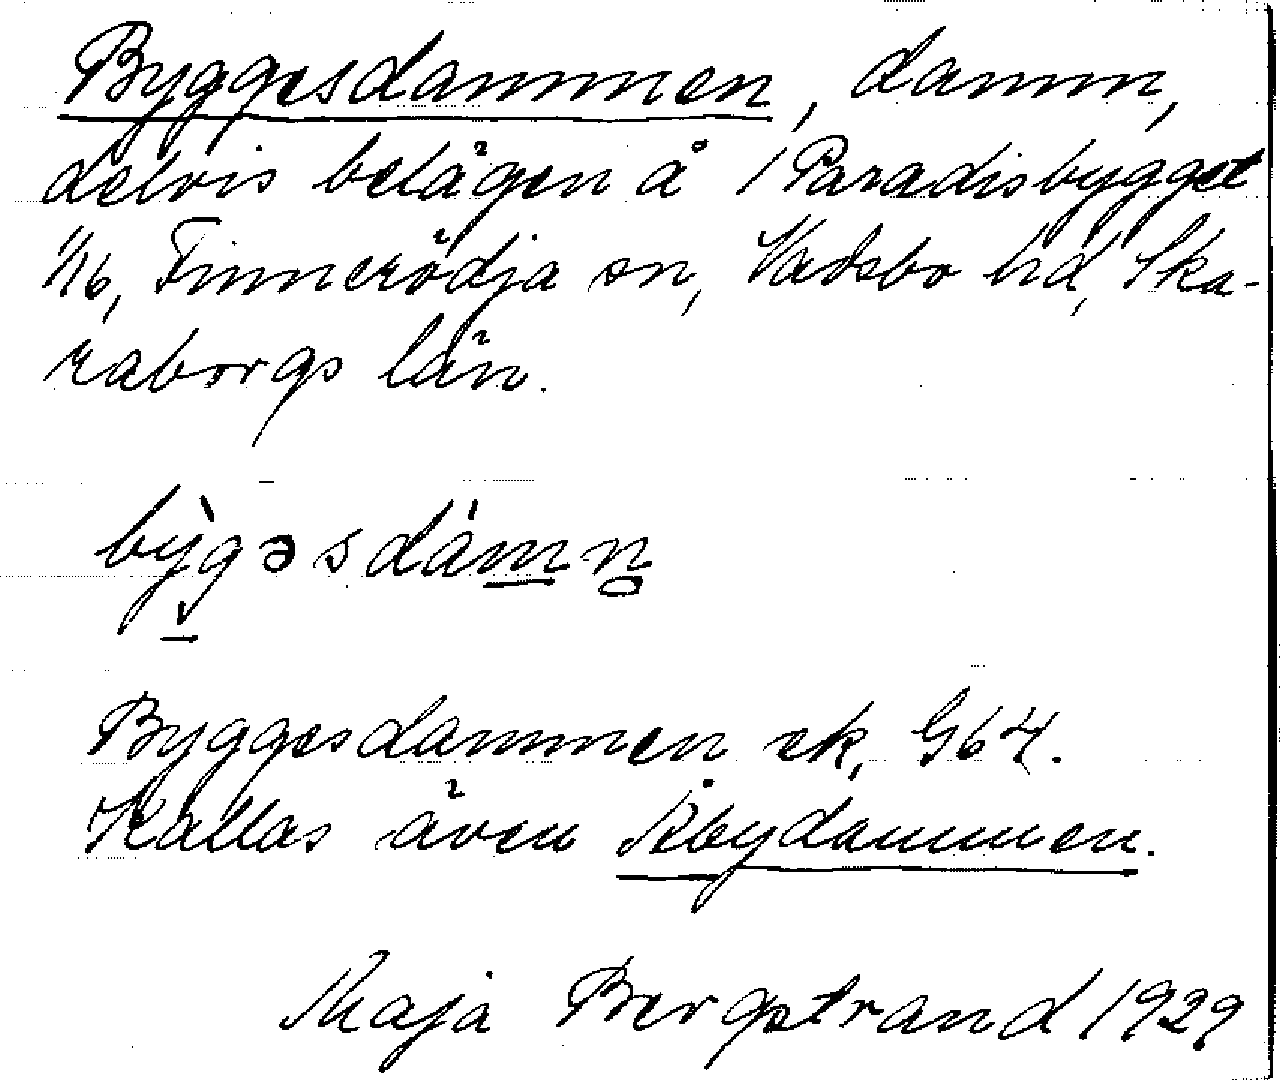 Byggesdammen, damm,
delvis belägen å 1 Paradisbygget
1/16, Finnerödja sn, Vadsbo hd, Ska-
raborgs län.
bỳgəsdámn̥
Byggesdammen ek, G64.
Kallas även Åbydammen.
Maja Bergstrand 1929